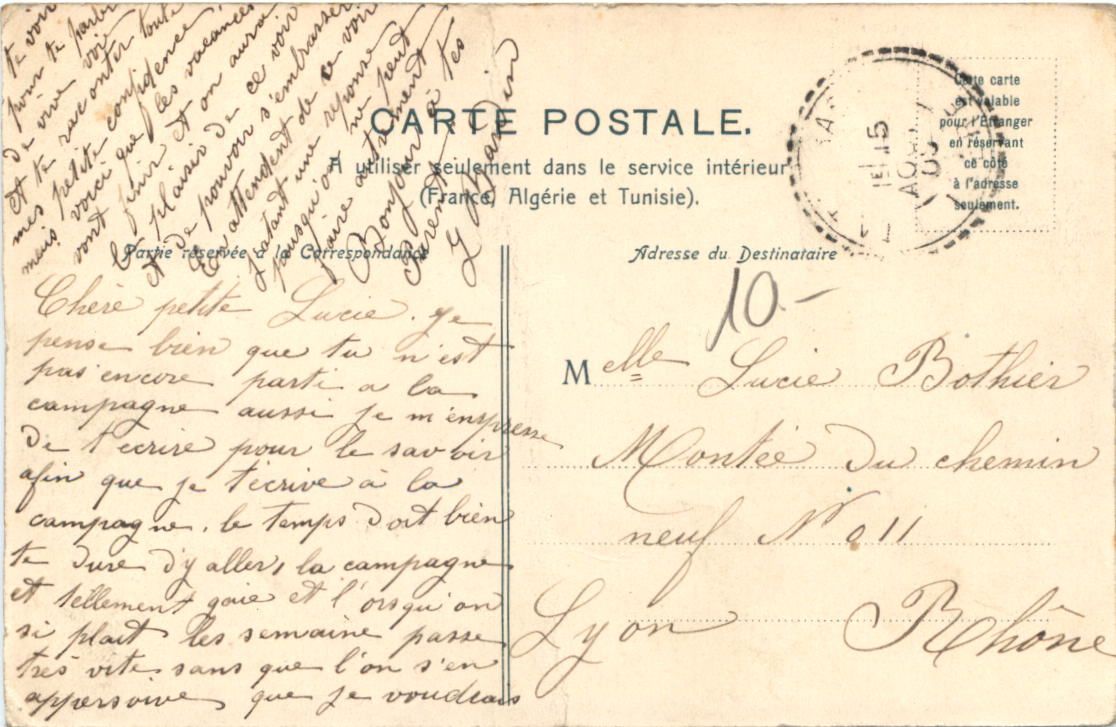 CARTE POSTALE.
A utiliser seulement dans le service intérieur
(France, Algérie et Tunisie).
Cette carte
est valable
pour l'Étranger
en réservant
ce côté
à l'adresse
seulement.
15
AOUT
Partie réservée à la Correspondance
Adresse du Destinataire
10-
Chère petite Lucie. Je
pense bien que tu n'est
pas encore parti a la
campagne aussi je m'enspresse
de t'ecrire pour le savoir
afin que je t'écrive à la
campagne. le temps doit bien
te dure d'y aller, la campagne
et tellement gaie et l'orsqu'on
si plait les semaine passe
très vite sans que l'on s'en
appersoive que je voudrais
te voir
pour te parler
de vive voix
et te raconter toute
mes petite confidence,
mais voici que les vacances
vont finir et on aura
le plaisir de ce voir
et de pouvoir s'embrasser
En attendent de ce voir
j'atant une reponse
puisqu'on ne peut
faire autrement
Bonjour à tes
Parents
Melle Lucie Bothier
Montée du chemin
neuf No 11
Lyon Rhône